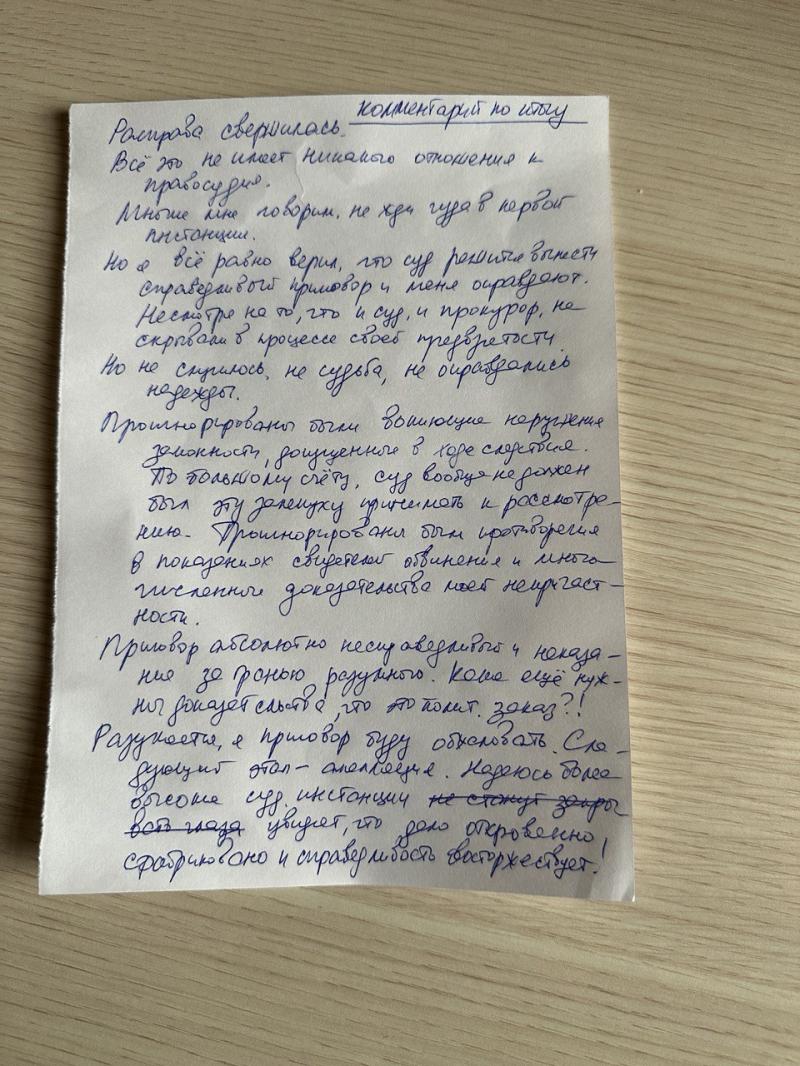 Комментарий по итогу
Расправа свершилась.
Всё это не имеет никакого отношения к
правосудию.
Многие мне говорили, не жди чуда в первой
инстанции.
Но я всё равно верил, что суд решится вынести
справедливый приговор и меня оправдают.
Несмотря на то, что и суд, и прокурор, не
скрывали в процессе своей предвзятости.
Но не случилось, не судьба, не оправдались
надежды.
Проигнорированы были вопиющие нарушения
законности, допущенные в ходе следствия.
По большому счёту, суд вообще не должен
был эту залепуху принимать к рассмотре-
нию. Проигнорированы были противоречия
в показаниях свидетелей обвинения и много-
численные доказательства моей непричаст-
ности.
Приговор абсолютно несправедливый и наказа-
ние за гранью разумного. Какие ещё нуж-
ны доказательства, что это полит. заказ?!
Разумеется, я приговор буду обжаловать. Сле-
дующий этап - апелляция. Надеюсь более
высокие суд. инстанции не станут закры
вать глаза увидят, что дело откровенно
сфабриковано и справедливость восторжествует!